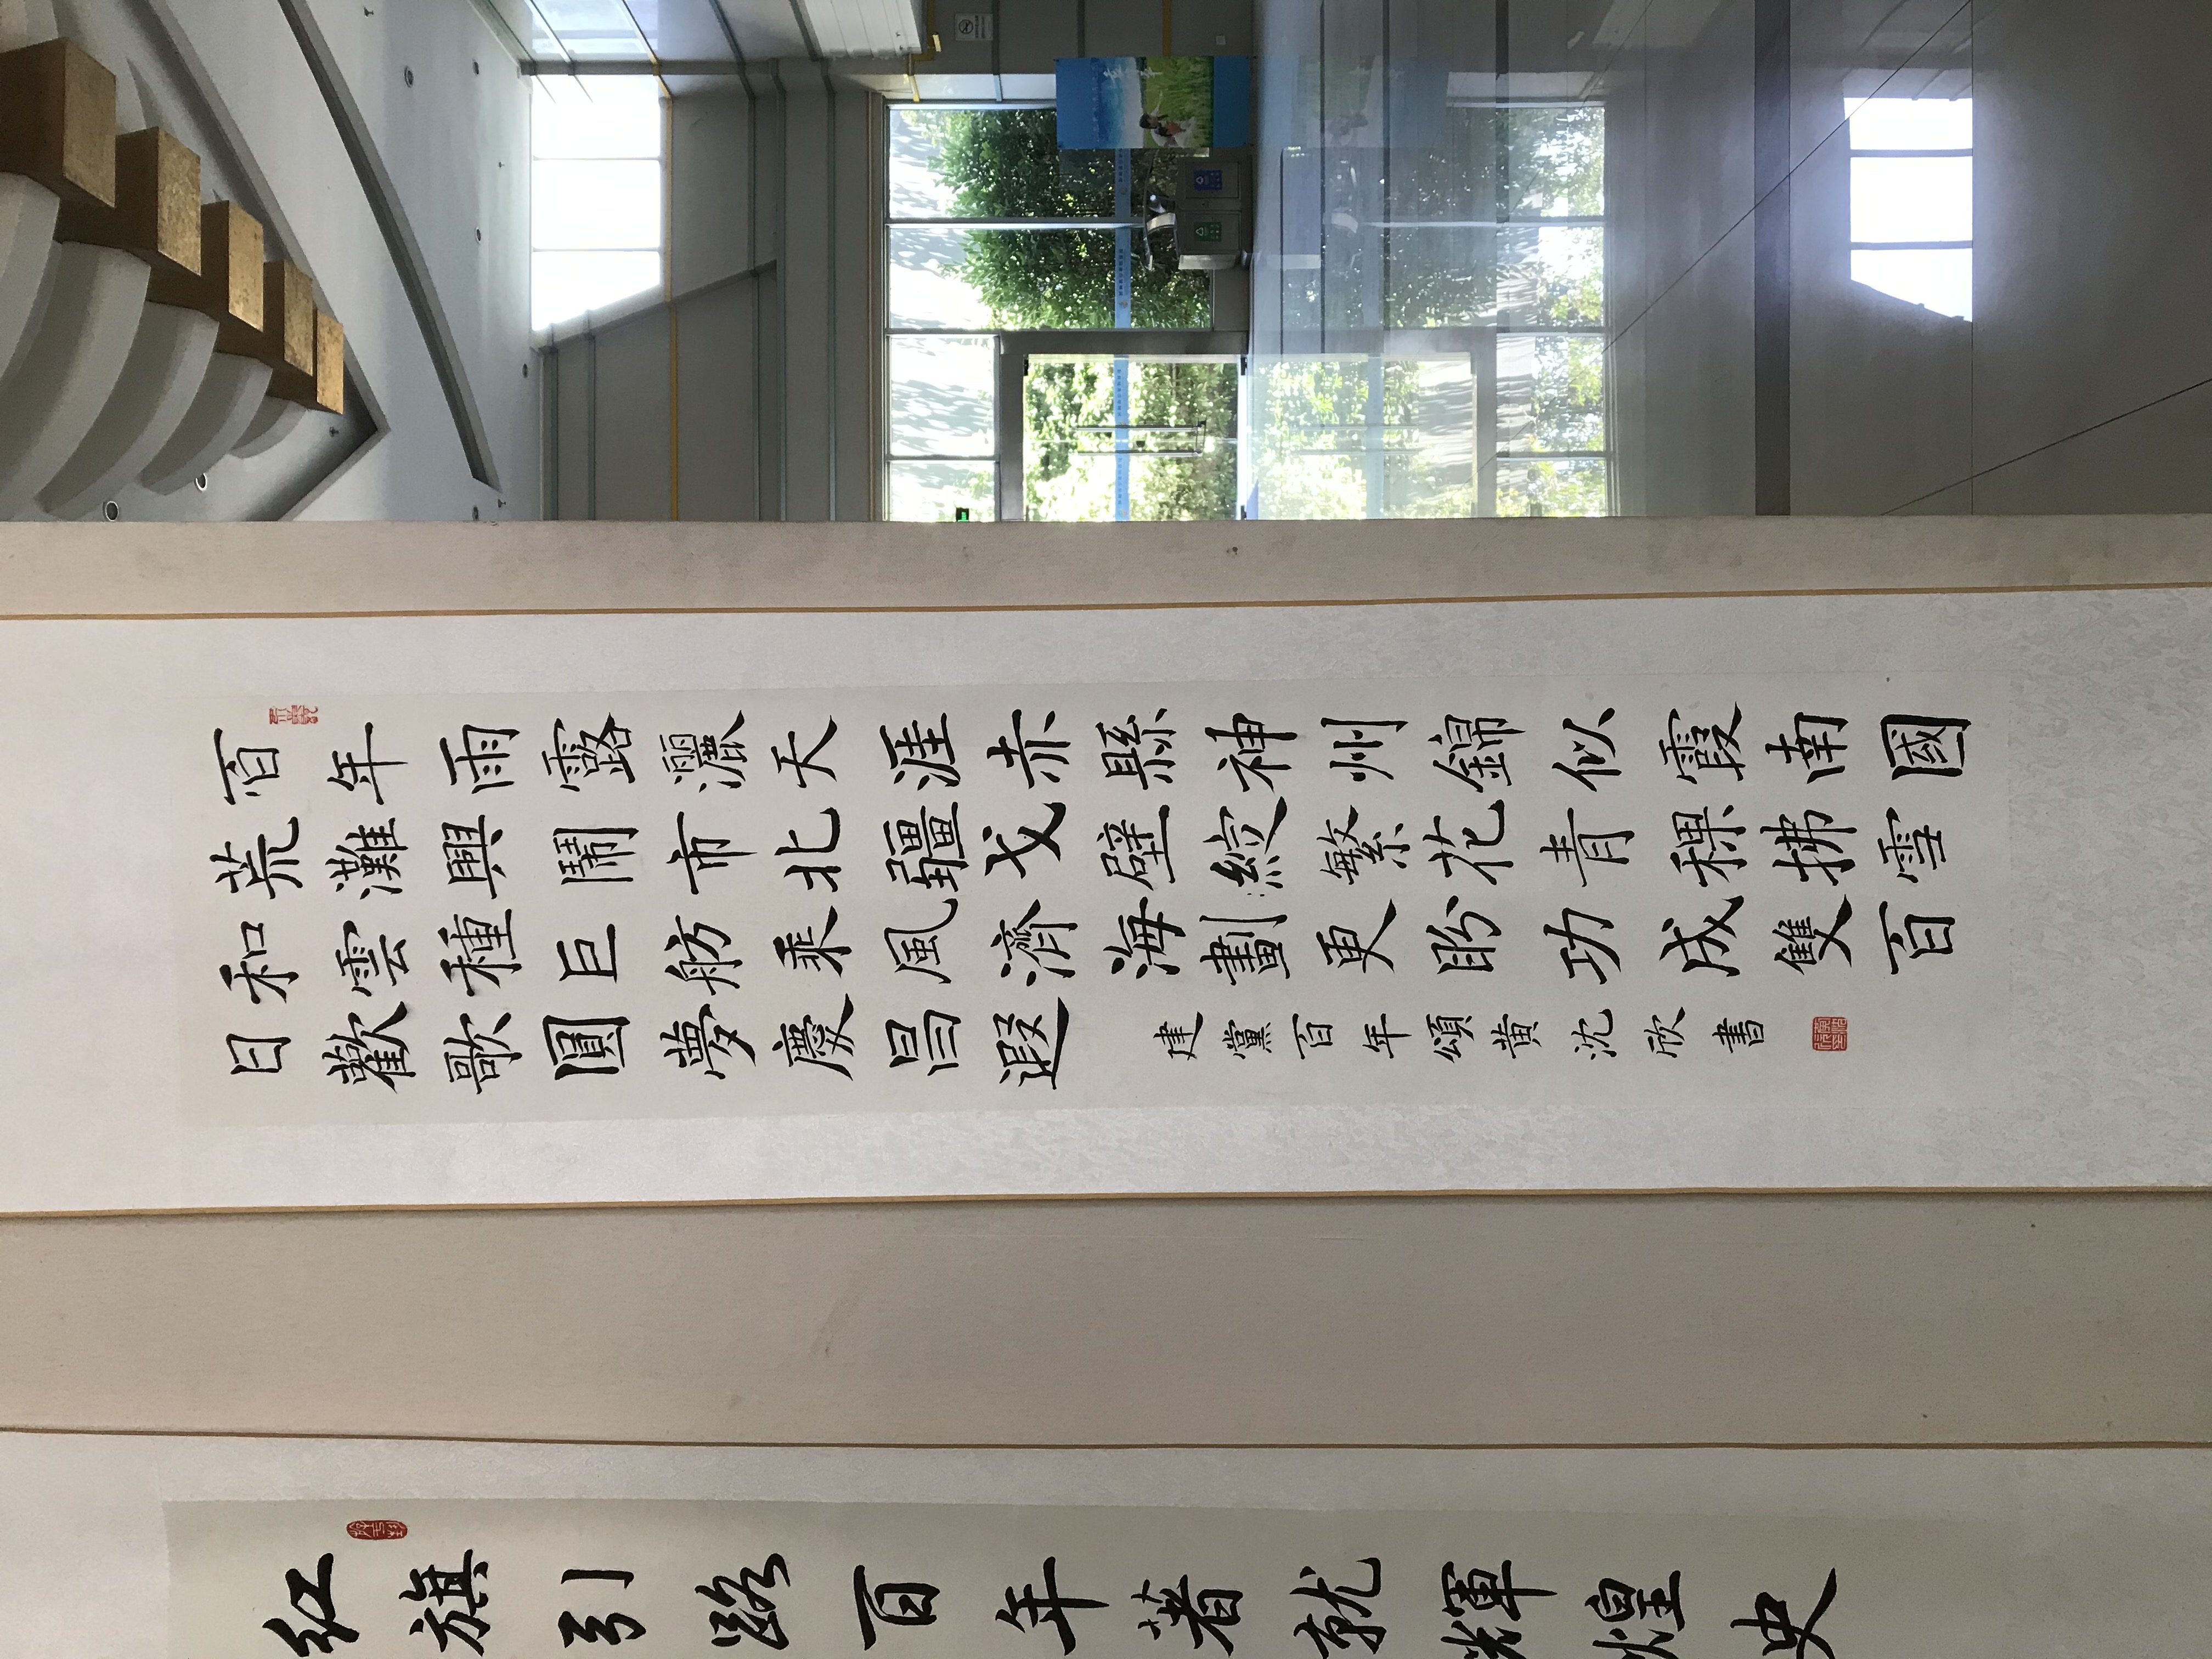 百年雨露灑天涯赤縣神州錦似霞南國
荒灘興鬧市北疆戈壁綻繁花青稞拂雪
和雲種巨舫乘風濟海劃更盼功成雙百
日歡歌圓夢慶昌遐
建黨百年頌黄沈欣書
紅旗引路百年著就輝煌史